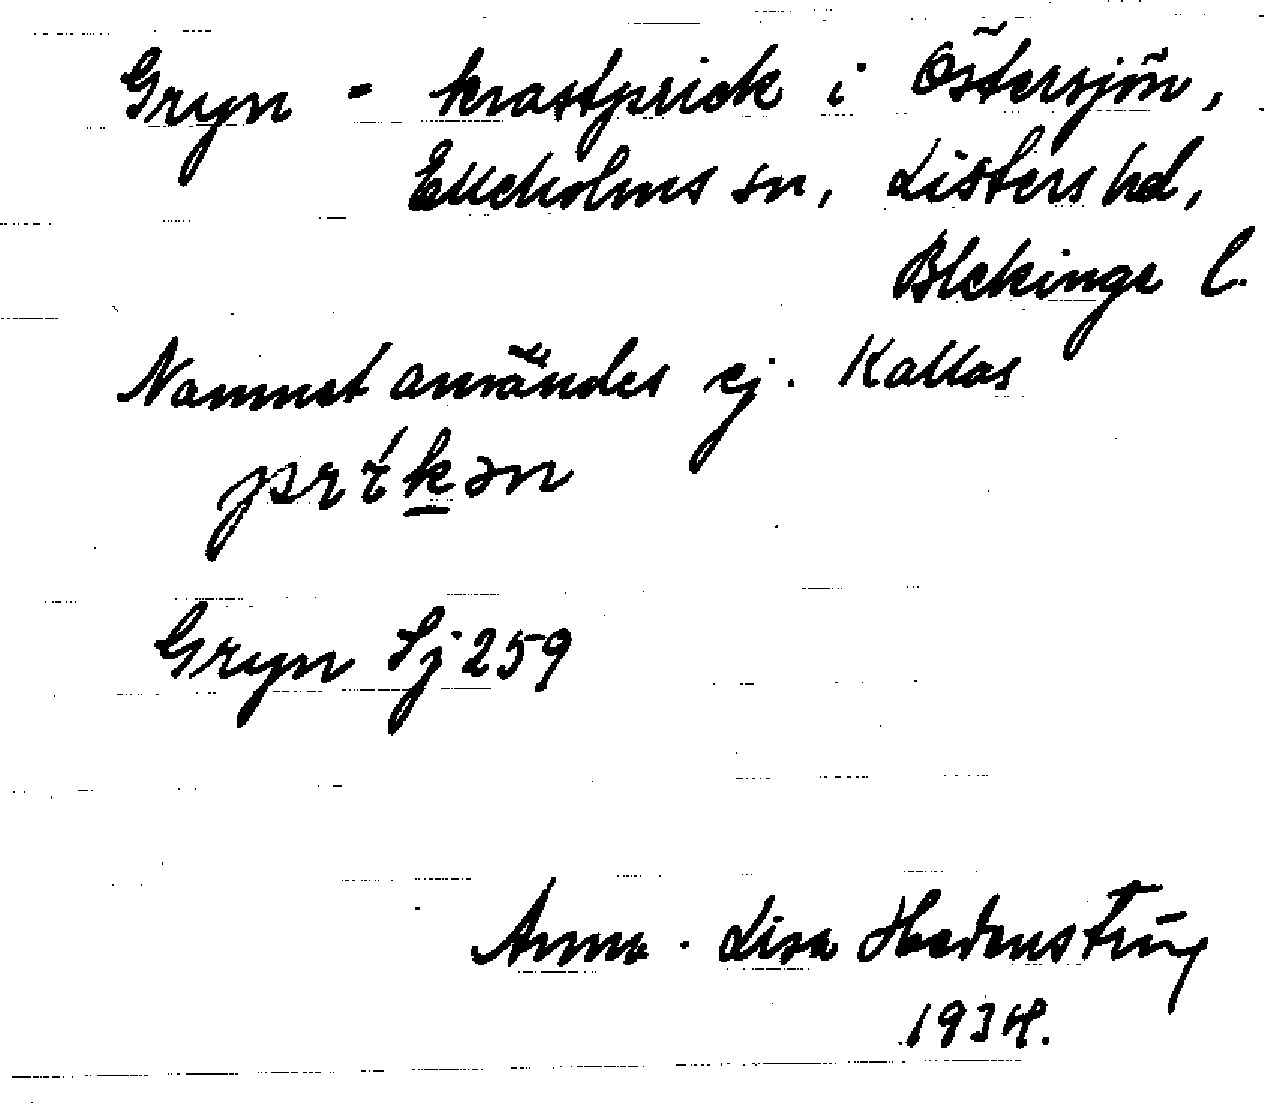 Gryn - krastprick i Östersjön,
Elleholms sn, Listers hd,
Blekinge l.
Namnet användes ej. Kallas
prɩkən
Gryn Sj 259
Anna-Lisa Hedenstring
1934.